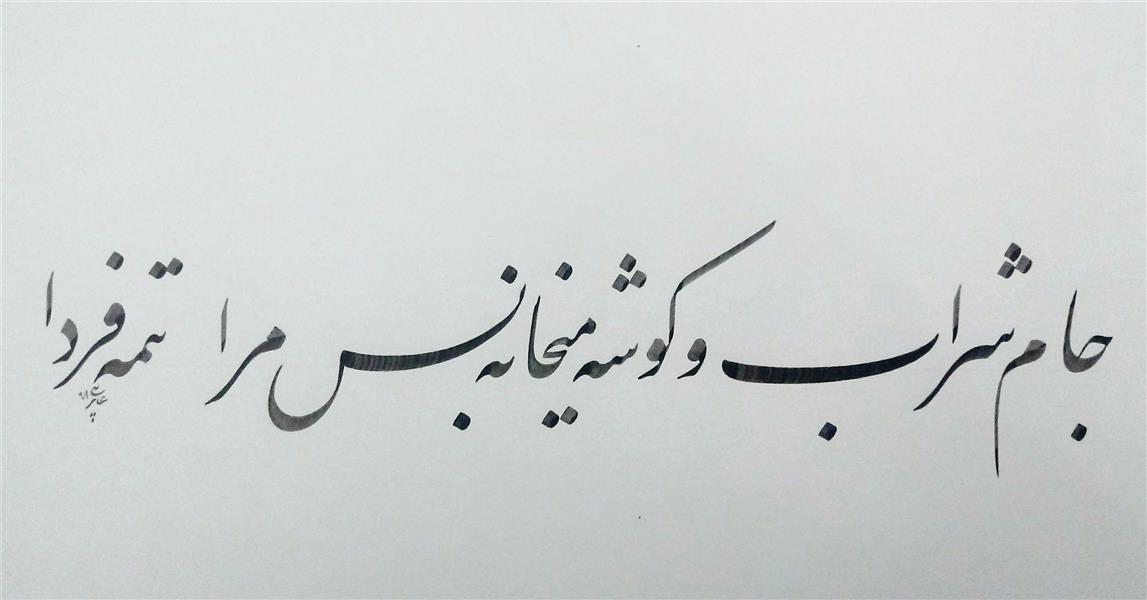 جام شراب و گوشه میخانه بس مرا تتمه فردا